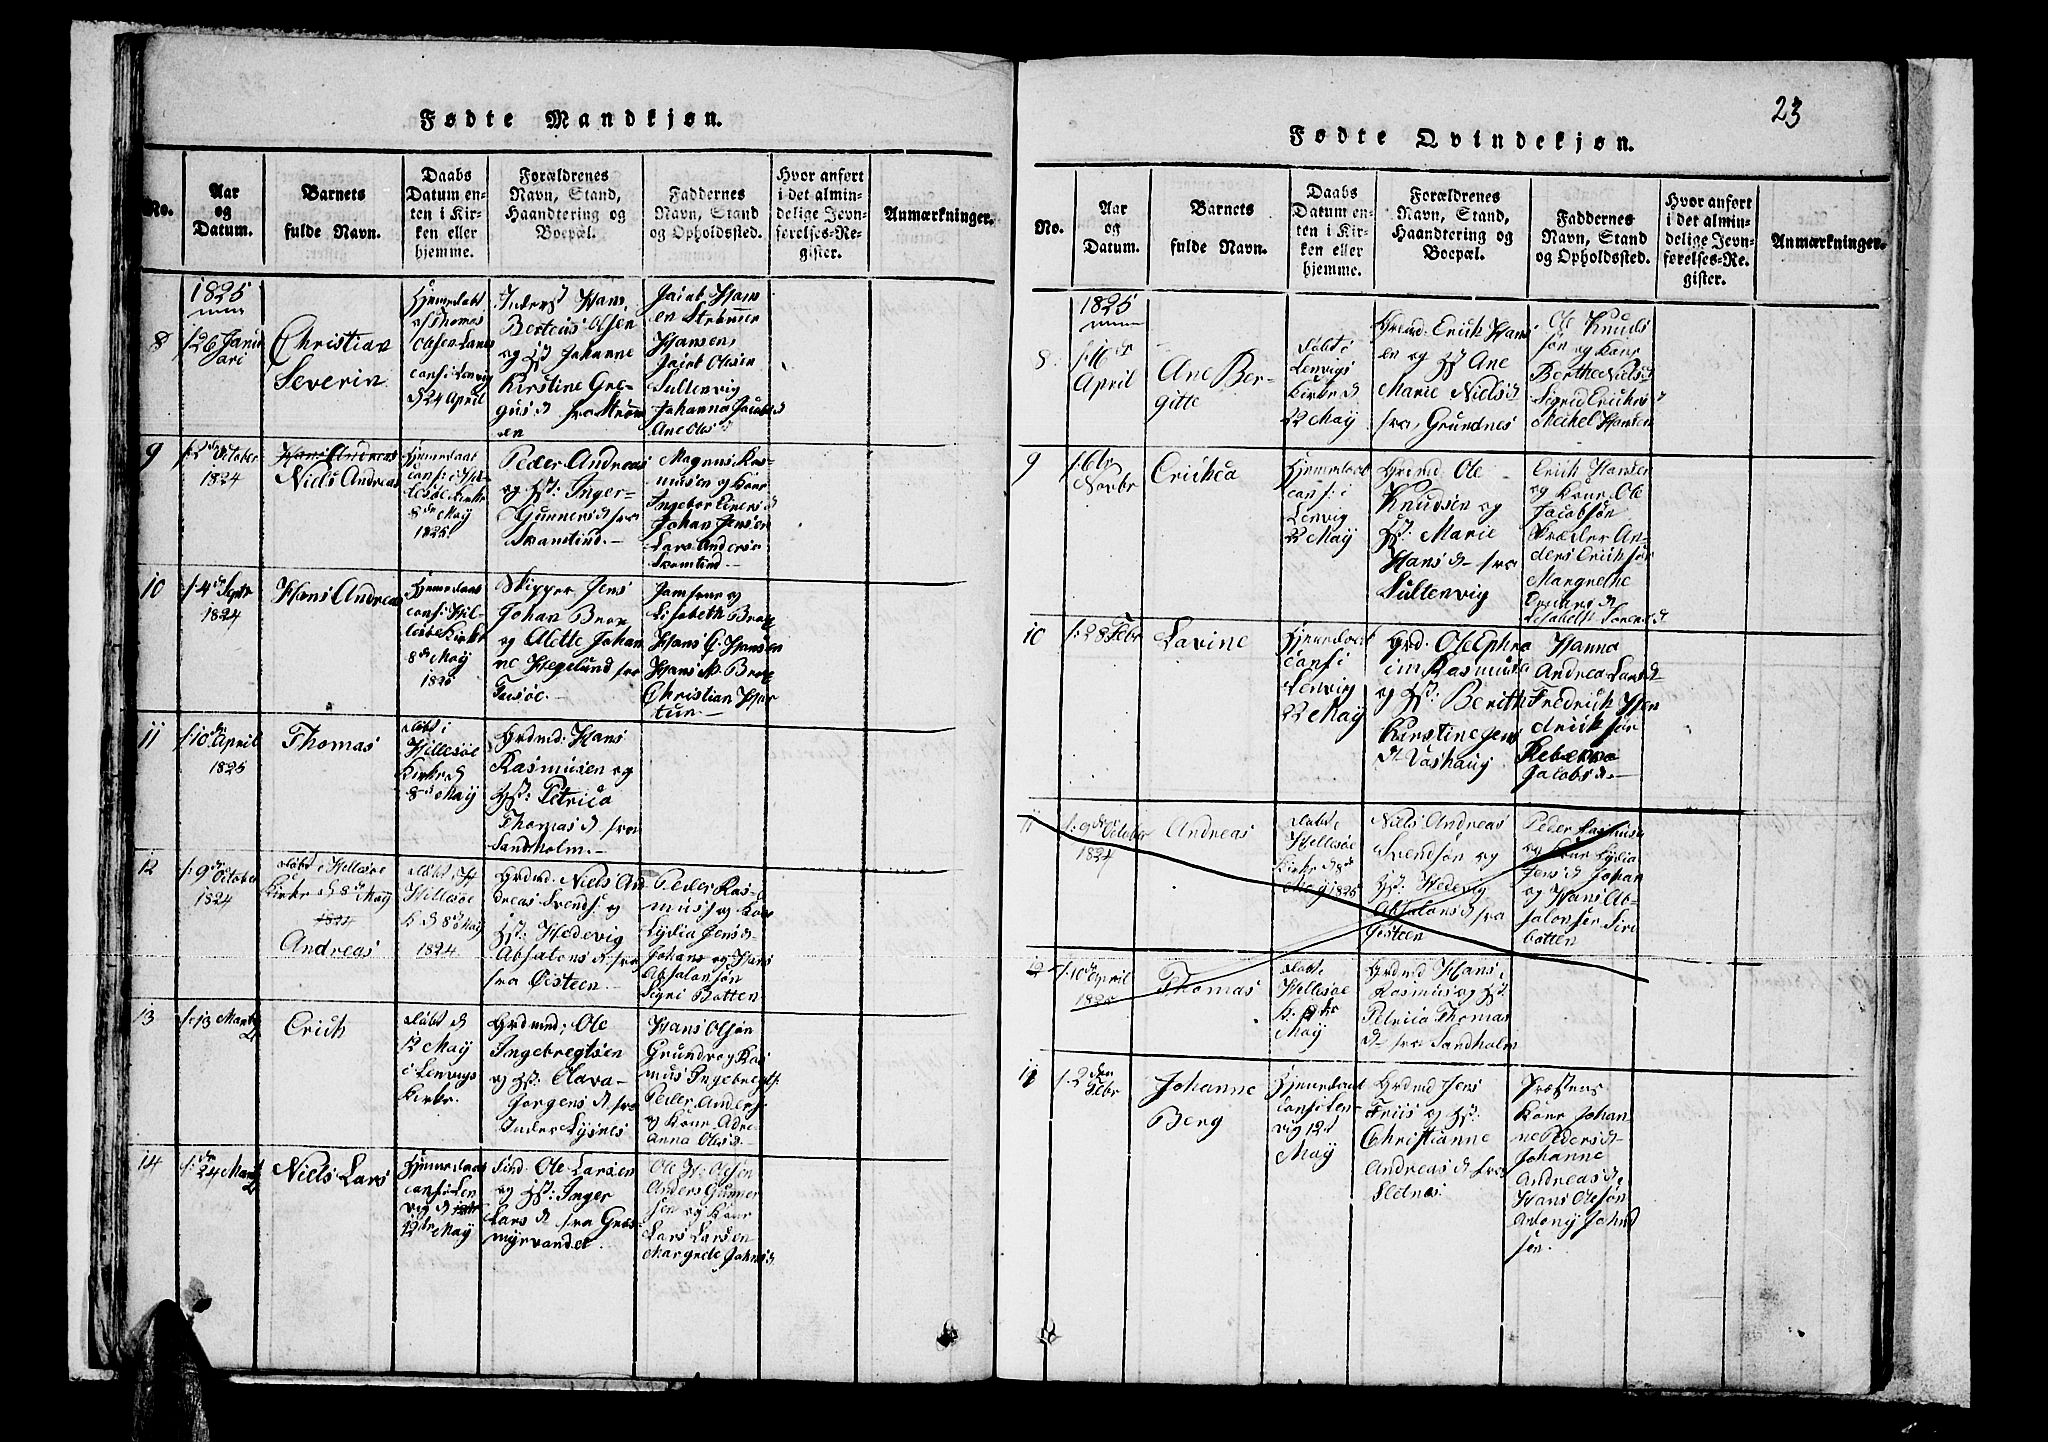 Fødte Mandkjøn.
No.
Aar
og
Datum.
Barnets
fulde Navn.
Daabs
Datum en-
ten i Kir-
ken eller
hjemme.
Forældrenes
Navn, Stand,
Haandtering og
Boepæl.
Faddernes
Navn, Stand
og Opholdssted.
Hvor anført
i det almin-
delige Jevn-
førelses-Re-
gister.
Anmærkninger.
1825
8
f: 26 Janu
ari
Christian
Severin
Hjemedøbt
af Thomas
Olsen
conf: i Lenvig
d 24 April
Hans
Berteus Olsen
og Hst Johanne
Kirstine Gre-
gus d fra
Jacob Hans
en
Hansen,
Jacob Olsen
Sultenvig
Johanna Jacobs d
Ane Ols d
9
f: 2 October
1824
Hans Andreas
Niels Andreas
Hjemedøbt
conf: i Hil-
lesøe Kirke
8de May
1825
Peder Andreas
og Hst: Inger
Gunners d fra
Skamtind.
Magnus Ras-
musen og Kone
Ingebor Einers d
Johan Jensen
Lars Anderse
Skamtind
10
f: 4de Septr
1824
Hans Andreas
Hjemedøbt
conf: i Hil-
lesøe Kirke
8de May
1825
Skipper Jens
Johan Brox
og Alette Johan
ne Hegelund fra
Tusøe.
Jomfrue
Lisabeth Brox
Hans C. Hansen
Hans M. Brox
Christian Her
tun.
11
f: 10de April
1825
Thomas
døbt i
Hillesøe
Kirke d
8de May
Grdmd: Hans
Rasmusen og
Hst: Petrica
Thomas d fra
Sandholm.
12
f: 9de October
1824
døbt i Hillesøe
Kirke d 8de May
1824
Andreas
døbt i H
Hillesøe
K d 8de May
1824
Grdmd: Niels An
dreas Svends: og
Hst: Hedevig
Absalons d fra
fra Øisteen
Peder Ras-
mus: og Kone
Lydia Jens d
Johans og Hans
Absalonsøn
Sigri Botten
13
f: 13 Marty
Erich
døbt d
12 May
i Lenvigs
Kirke.
Grdmd: Ole
Ingebregtsen
og Hst: Olava
Jørgens d fra
Inder Lysnes
Hans Olsøn
Grundvog Ras
mus Ingebregts:
Peder Anders
og Kone Adri-
anna Ols d.
14
f: 24 Marty
Niels Lars
Hjemedøbt
conf: i Len
vig d
12te May
Ind: Ole Larsen
og Hst: Inger
Lars d fra Græs
myrvandet.
Ole H: Olsen
Anders Gunner
sen og Kone
Lars Larsen
Margrede Johns d
23
Fødte Qvindekjøn.
No.
Aar
og
Datum.
Barnets
fulde Navn.
Daabs
Datum en-
ten i Kir-
ken eller
hjemme.
Forældrenes
Navn, Stand,
Haandtering og
Boepæl.
Faddernes
Navn, Stand
og Opholdssted.
Hvor anført
i det almin-
delige Jevn-
førelses-Re-
gister.
Anmærkninger.
1825
8
April
Ane Ber-
gitte
Døbt i
Lenvigs
Kirke d
22 May
Grdmd: Erich Hans
en og Hst Ane
Marie Niels d
fra Grundnes
Ole Knuds
søn og Kone
Berthe Niels d
Sigrid Erichs d
Meikel Hansen
9
Novbr
Erichea
Hjemedøbt
conf: i
Lenvig
22 May
Grdmd: Ole
Knudsen og
Hst: Marie
Hans d fra
Sultenvig
Erich Hansen
og Kone Ole
Jacobsøn
An
ders Erichsør
Margrethe
Lisabeth Sørens d
10
f: 28 Febr
Lavine
Hjemedøbt
conf: i
Lenvig
22 May
Grd: Ole Ephra
im Rasmuse
og Hst: Berith
Kirstine Jens
d Vashaug
Hanna
Andrea Lars d
Fredrich Hen
drichsør
Rebecca
Jacobs d.
11
f: 9de October
1824
Andreas
Døbt i
Hillesøe
Kirke d 8de
May 1825
Niels Andreas
Svendsøn og
Hst: Hedevig
Absalons d fra
Øisteen
Peder Rasmuse
og Kone Lydia
Jens d Johan
og Hans Ab-
salonsør Siri
botten
12
f: 10de April
1825
Thomas
døbt i
Hillesøe
K:
May
Grdmd Hans
Rasmus og Hst
Petrica Thomas
d fra Sandholm
11
f. 2 den
Febr
Johanne
Berg
Hjemedøbt
conf: i Len-
vig 12te
May
Grdmd Jens
Friis og Hst:
Christianne
Andreas d fra
Sletnes
Præstens
Kone Johan
ne Peders d
Johanne
Andreas d,
Hans Olesøn
Antony Johns
sen.